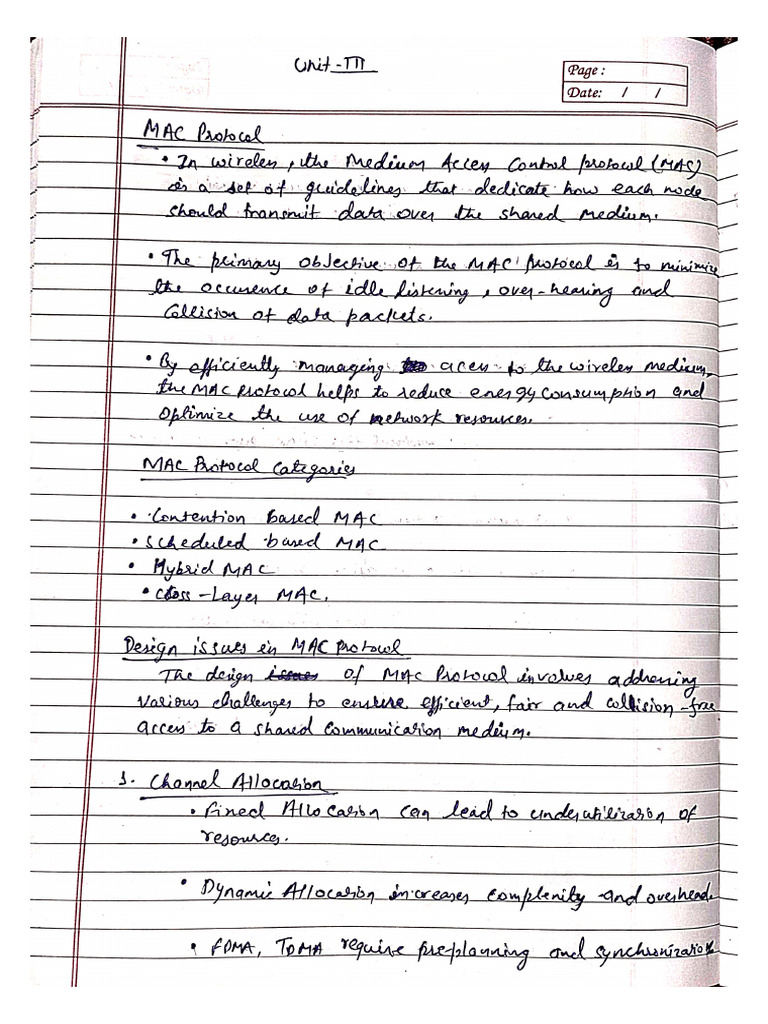 Unit-III
Page :
Date: / /
MAC Protocol
• In wireless, the Medium Access Control protocol (MAC)
is a set of guidelines that dedicate how each node
should transmit data over the shared medium.
• The primary objective of the MAC Protocol is to minimize
the occurence of idle listening, over-hearing and
Collision of data packets.
• By efficiently managing acess to the wireless medium,
the MAC Protocol helps to reduce energy consumption and
Optimize the use of network resources.
MAC Protocol Categories
• Contention Based MAC
• Scheduled based MAC
• Hybrid MAC
• Cross-Layer MAC.
Design issues in MAC protocol
The design issues of MAC Protocol involves addressing
various challenges to ensure efficient, fair and collision-free
access to a shared communication medium.
1. Channel Allocation
• Fixed Allocation can lead to underutilization of
resources.
• Dynamic Allocation increases complexity and overhead.
• FDMA, TDMA require pre-planning and synchronization